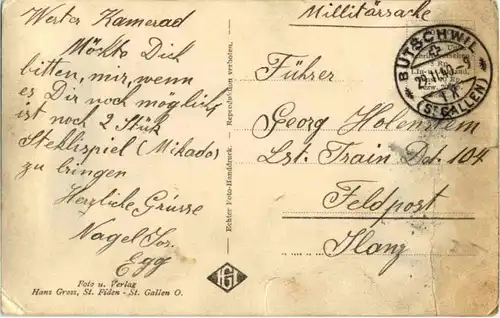 Werter Kamerad
Möchte Dich
bitten, mir, wenn
es Dir noch möglich
ist noch 2 Stük
Stehlispiel (Mikado)
zu bringen
Herzliche Grüsse
Nagel Jos.
Egg
Foto u. Verlag
Hans Gross, St. Fiden - St. Gallen O.
Echter Foto-Handdruck. Reproduktion verboten.
Millitärsache
BÜTSCHWIL
(ST. GALLEN)
Führer
Georg Holenstein
Lst. Train Det. 104
Feldpost
Ilanz